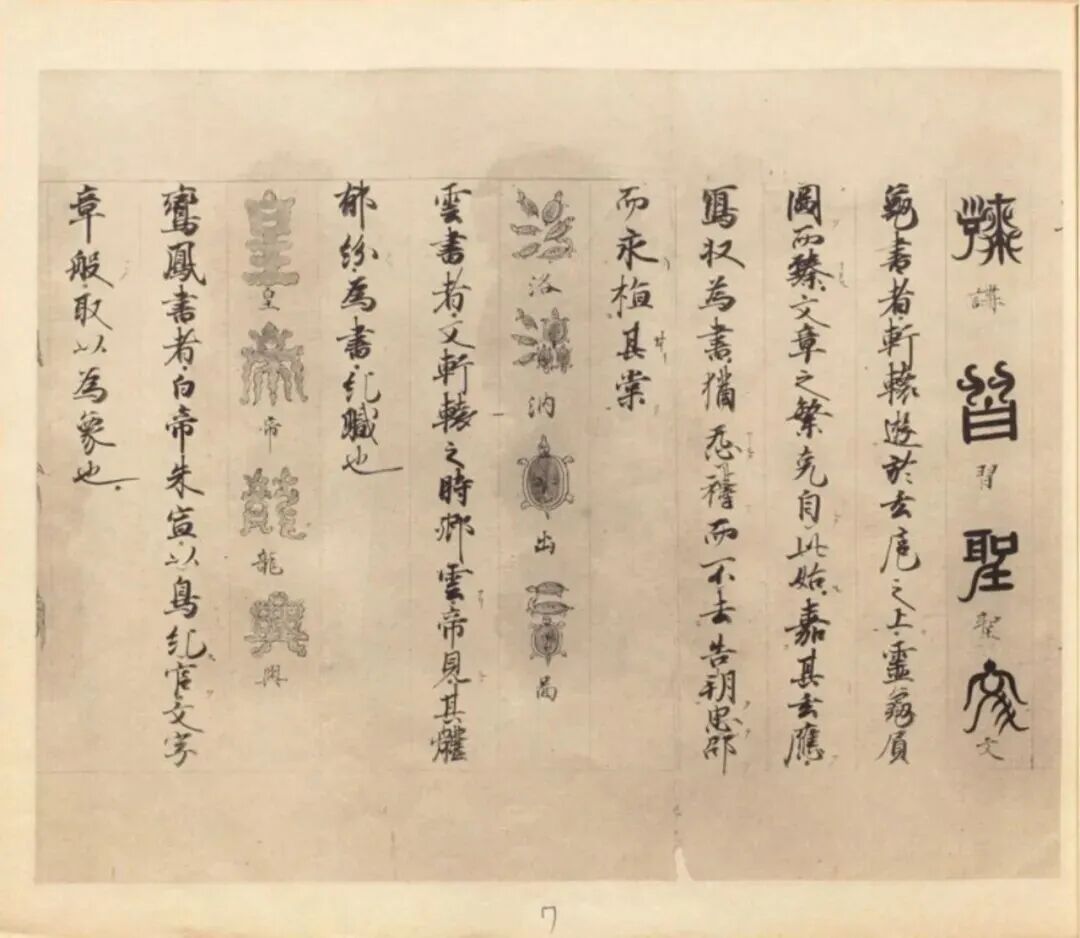 講 習 聖 文
龜書者軒轅遊於玄扈之上靈龜負
圖而臻文章之繁克自此始嘉其玄應
寫以為書猶忍禫而不去告朔思邵
而永植其棠
洛 汭 出 啚
雲書者文軒轅之時卿雲帝見其體
郁紛為書紀職也
皇 帝 龍 興
鸞鳳書者白帝朱宣以鳥紀官文字
章般取以為象也
7